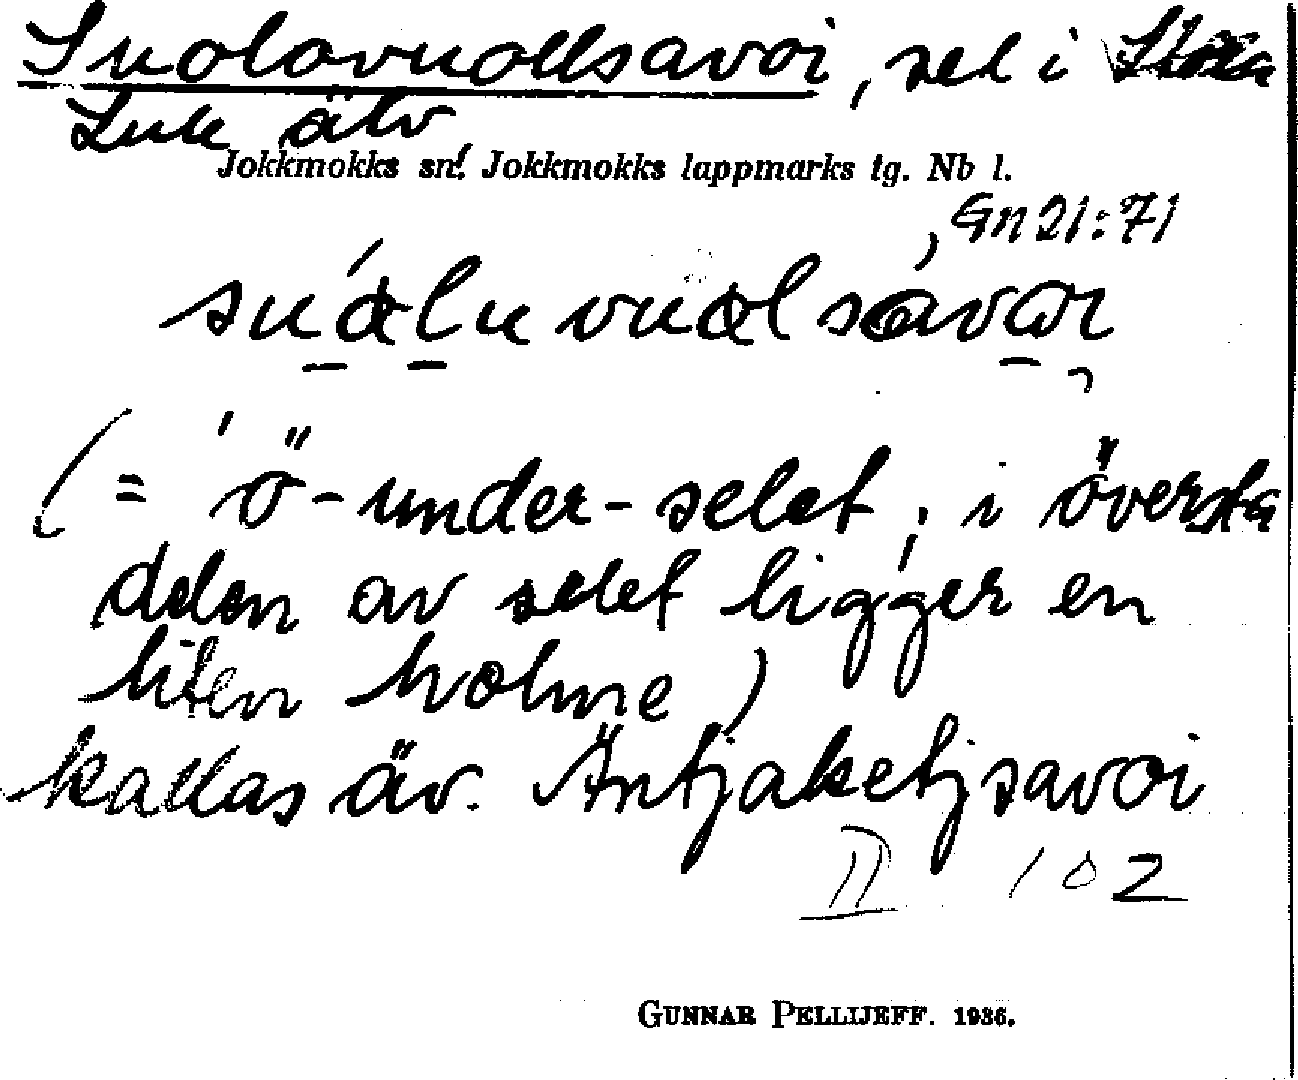 Suolovuollsavoi, sel i Stora
Lule älv
Jokkmokks sn. Jokkmokks lappmarks tg. Nb l.
Gn 21:71
suáluvuolsavai
(= 'ö-under-selet'; i översta
delen av selet ligger en
liten holme)
kallas äv. Äntjaketjsavoi
II 102
GUNNAR PELLIJEFF. 1936.